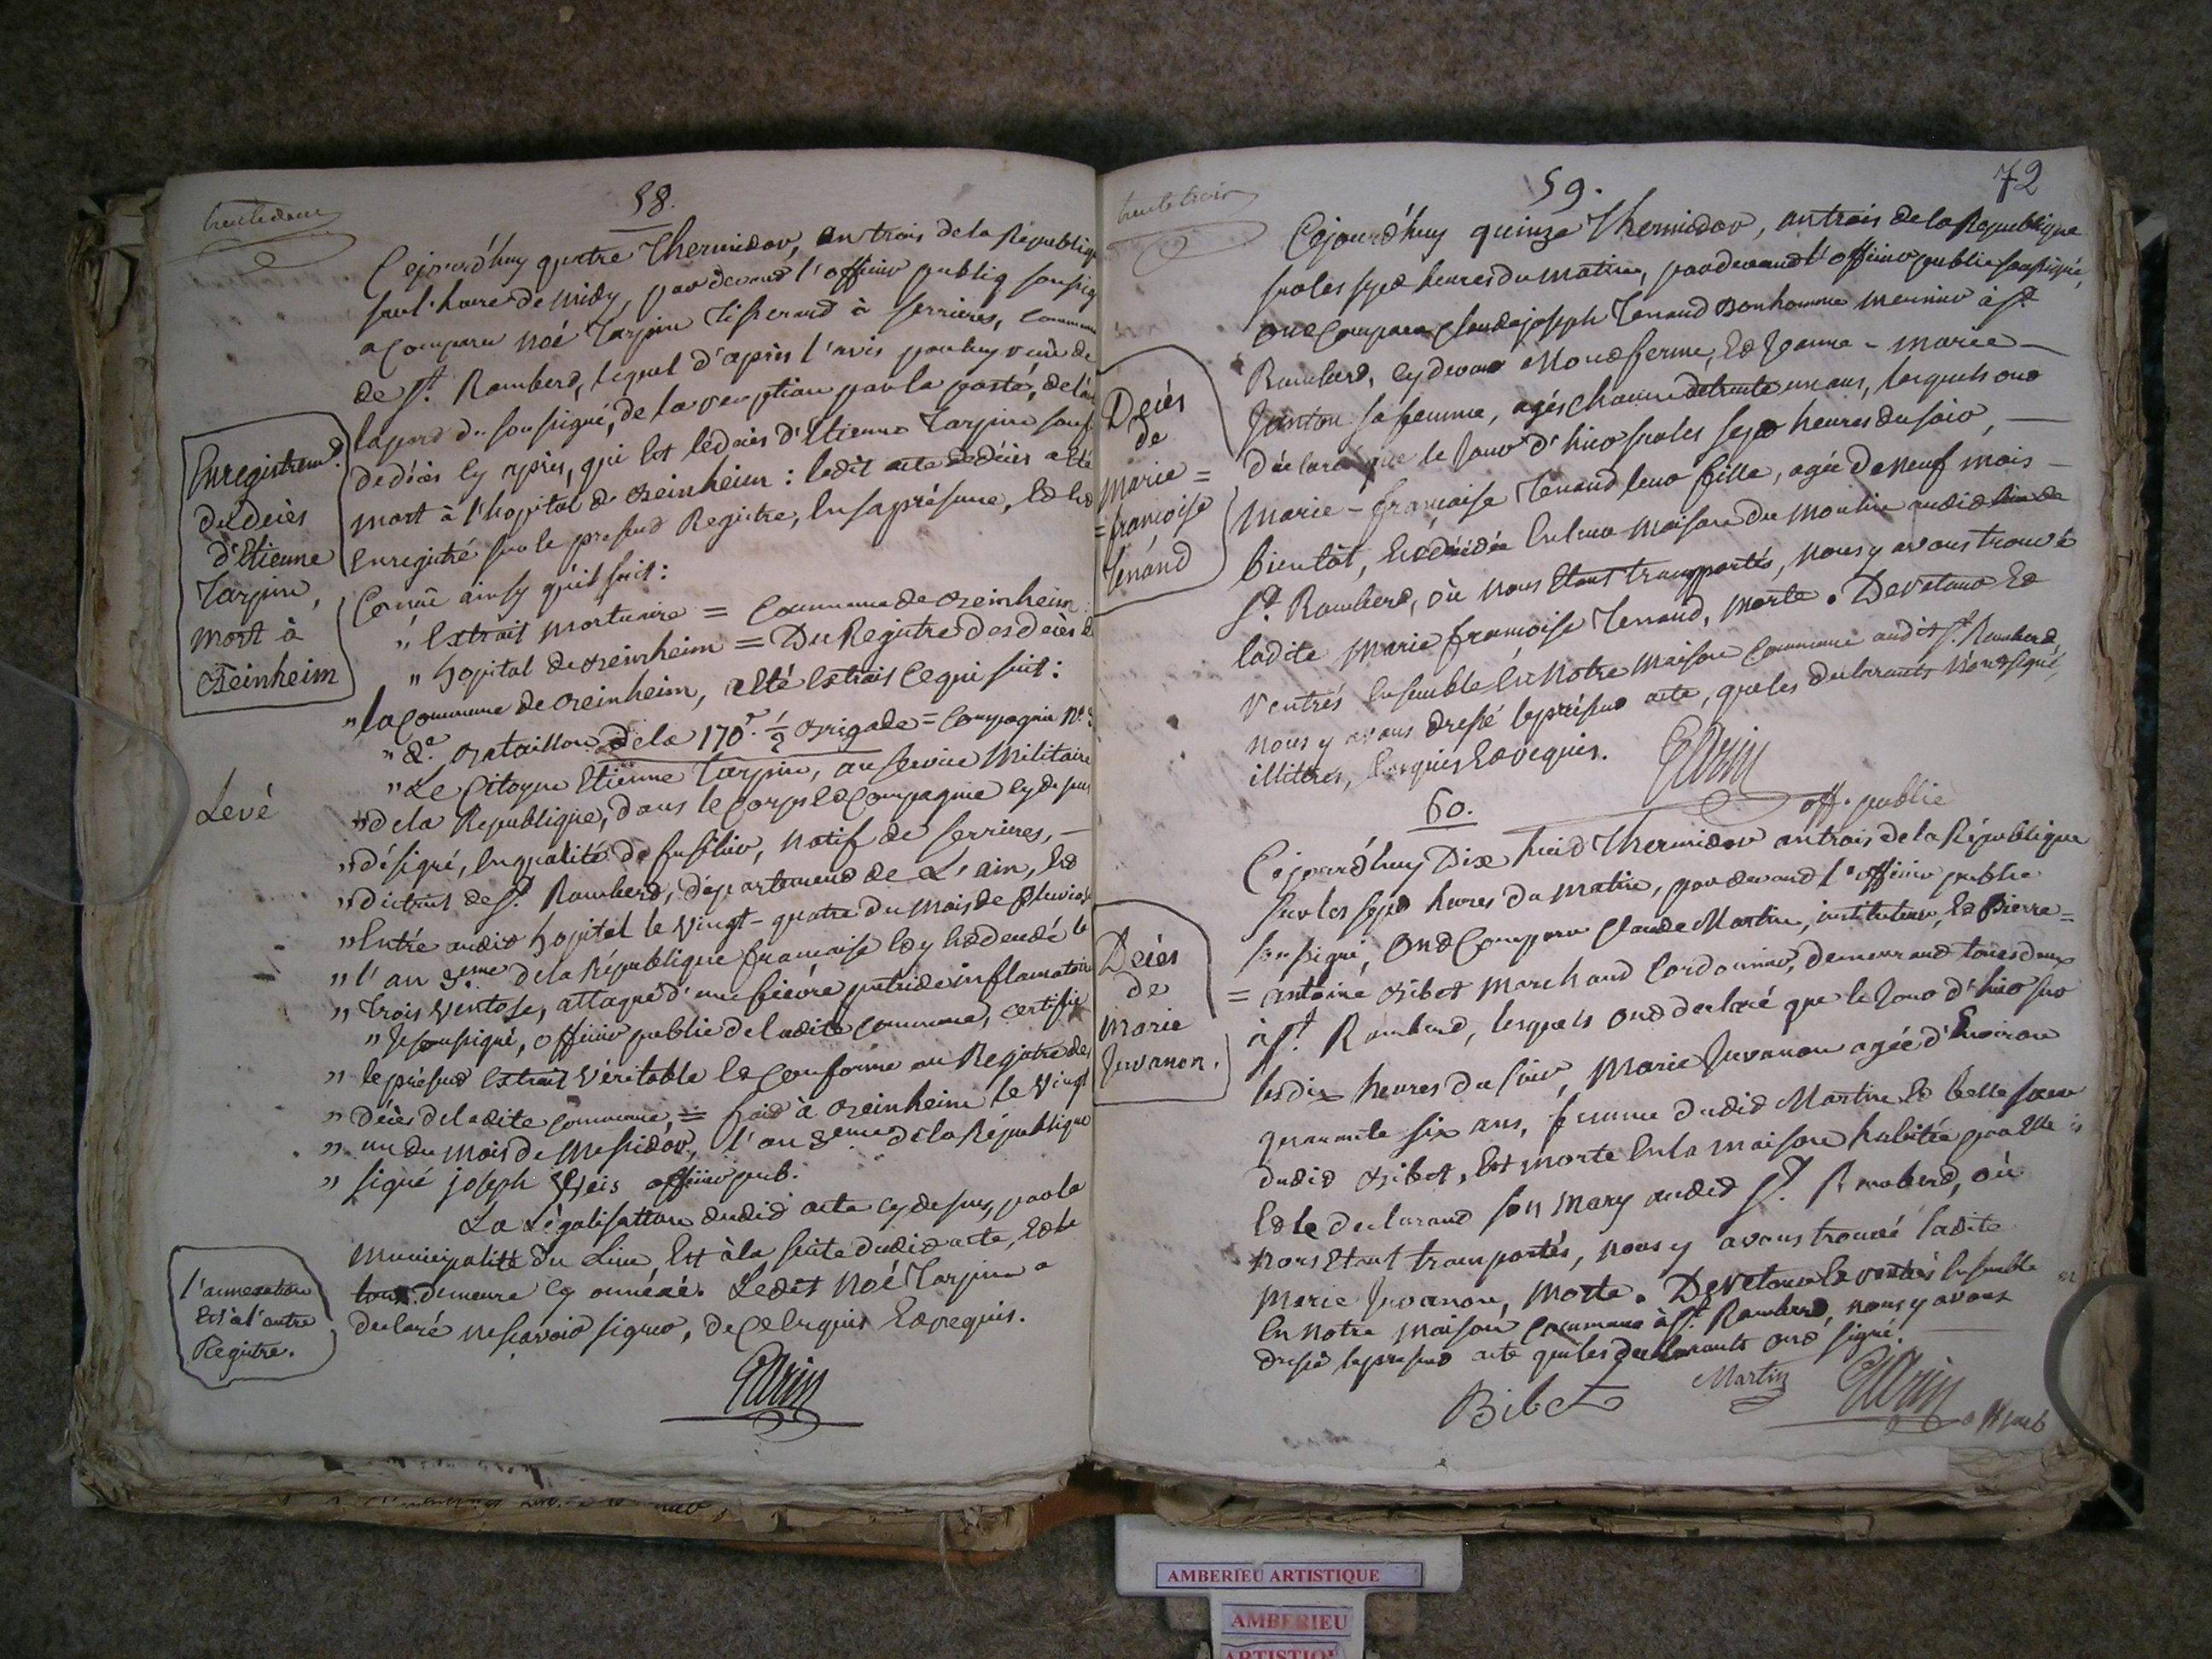 trente deux
58.
Cejourd'huy quatre Thermidor, an trois de la Républiq
sur l'heure de midy, par devant l'officier publiq soussig
a comparu Noé Tarpin tisserand à Serrieres, commun
de St. Rambert, lequel d'après l'avis par luy reçu de
la part du soussigné, de la reception par la poste, de l'a
de décès cy après, qui est le décès d'Etienne Tarpin
mort à l'hopital de Beinheim : ledit acte de décès a été
enregistré sur le present Registre, en sa présence, et est
Conçû ainsy qu'il suit :
" Extrait mortuaire = Commune de Beinheim
" hopital de Beinheim = Du Registre des decès de
" la Commune de Beinheim, a été extrait ce qui suit :
" 2e. Bataillon de la 170e. 1/2 Brigade = Compagnie No.
" Le Citoyen Etienne Tarpin, au service militaire
" de la Republique, dans le Corps et Compagnie cy dessus
" désigné, en qualité de fusilier, natif de Serrieres, —
" district de St. Rambert, département de L'ain, est
" Entré audit hopital le vingt-quatre du mois de Pluviose
" l'an 3eme de la République francaise et y est decedé le
" trois ventose, attaqué d'une fièvre putride inflamatoire
" Je soussigné, officier public de ladite commune, certifie
" le présent extrait véritable et conforme au Registre des
" décès de ladite commune, = fait à Beinheim le vingt
" un du mois de Messidor, l'an 3eme de la République
" signé joseph Weis officier pub.
La Légalisation dudit acte cy dessus, par la
municipalité du Lieu est à la suite dudit acte, et le
tout demeure cy annéxé. Ledit Noé Tarpin a
declaré ne savoir signer, de ce enquis et requis.
Garin
Enregistremt.
du décès
d'Etienne
Tarpin,
mort à
Beinheim
Levé
l'annexation
est à l'autre
Registre.
trente trois
59.
72
Cejourd'huy quinze Thermidor, an trois de la Republique
sur les sept heures du matin, par devant l'officier public soussigné,
ont comparu Claude joseph Tenand Bonhomme meunier à St.
Rambert, cy devant Montferme, et Jeanne-marie —
Junton sa femme, agés chacun de trente un ans, lesquels ont
déclaré que le jour d'hier sur les sept heures du soir, —
Marie-françoise Tenand leur fille, agée de neuf mois —
bientôt, est décédée en leur maison du moulin audit lieu de
St. Rambert, où nous étant transportés, nous y avons trouvé
ladite Marie françoise Tenand, morte. De retour et
rentrés ensemble en notre maison commune audit St. Rambert
nous y avons dressé le présent acte, que les declarants n'ont signé,
illiterés, enquis et requis.
Garin
off. public
Décès
de
Marie =
= françoise
Tenand
60.
Cejourd'huy Dix huit Thermidor an trois de la République
sur les sept heures du matin, par devant l'officier public
soussigné, ont comparu Claude Martin, instituteur, et Pierre =
= antoine Bibet marchand Cordonnier, demeurant tous deux
à St. Rambert, lesquels ont declaré que le jour d'hier sur
les dix heures du soir, Marie Juvanon agée d'environ
quarante six ans, femme dudit Martin et belle soeur
dudit Bibet, est morte en la maison habitée par elle
et le declarant son mary audit St. Rambert, où
nous étant transportés, nous y avons trouvé ladite
Marie Juvanon, morte. De retour et rentrés ensemble
en notre maison commune à St. Rambert, nous y avons
dressé le présent acte que les declarants ont signé. —
Bibet
Martin
Garin
off pub
Décès
de
Marie
Juvanon.
AMBERIEU ARTISTIQUE
AMBERIEU
ARTISTIQUE